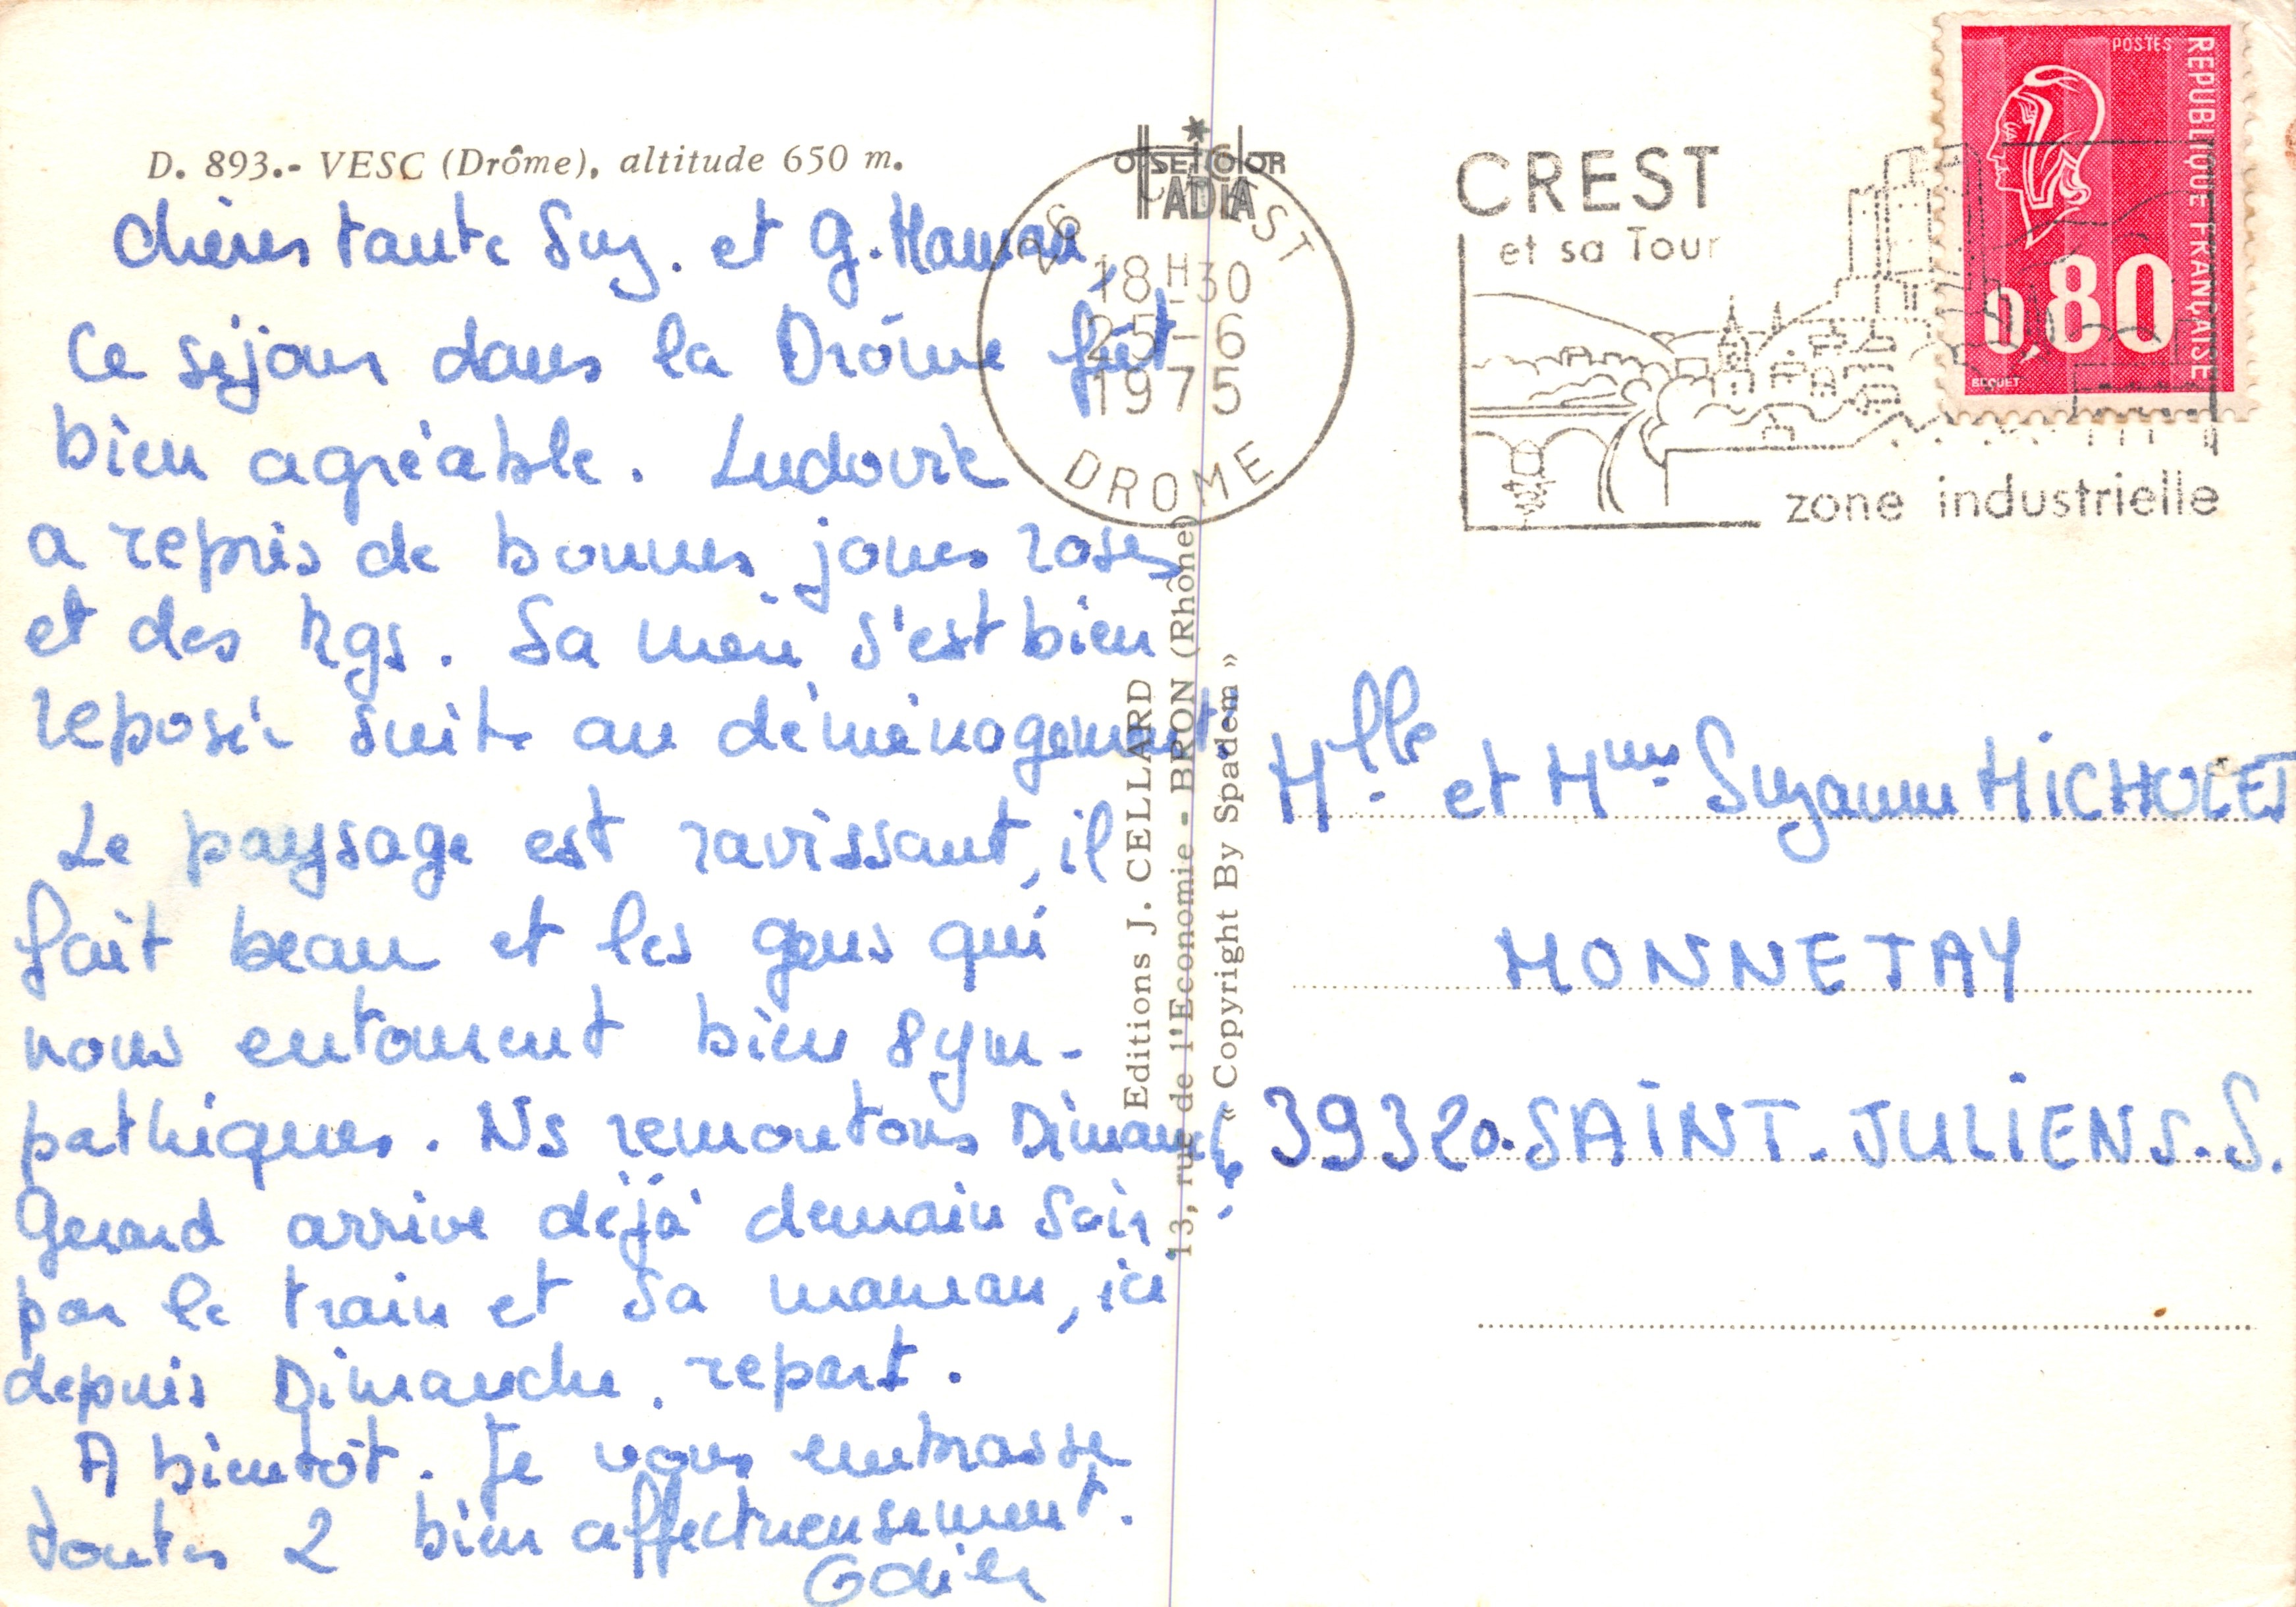 D. 893.- VESC (Drôme), altitude 650 m.
Chères tante Suz. et G. Maman,
Ce séjour dans la Drôme fut
bien agréable. Ludovic
a repris de bonnes joues roses
et des kgs. Sa mère s'est bien
reposée suite au déménagement.
Le paysage est ravissant, il
fait beau et les gens qui
nous entourent bien sym-
pathiques. Ns remontons Dimanche.
Gérard arrive déjà demain soir
par le train et sa maman, ici
depuis Dimanche, repart.
A bientôt. Je vous embrasse
toutes 2 bien affectueusement.
Odile
OFFSETCOLOR
ADIA
26 CREST
18H30
25-6
1975
DROME
Editions J. CELLARD
13, rue de l'Economie - BRON (Rhône)
« Copyright By Spadem »
CREST
et sa Tour
zone industrielle
POSTES
REPUBLIQUE FRANÇAISE
0,80
BEQUET
Melle et Mme Suzanne MICHOLET
MONNETAY
39320. SAINT. JULIEN S. S.